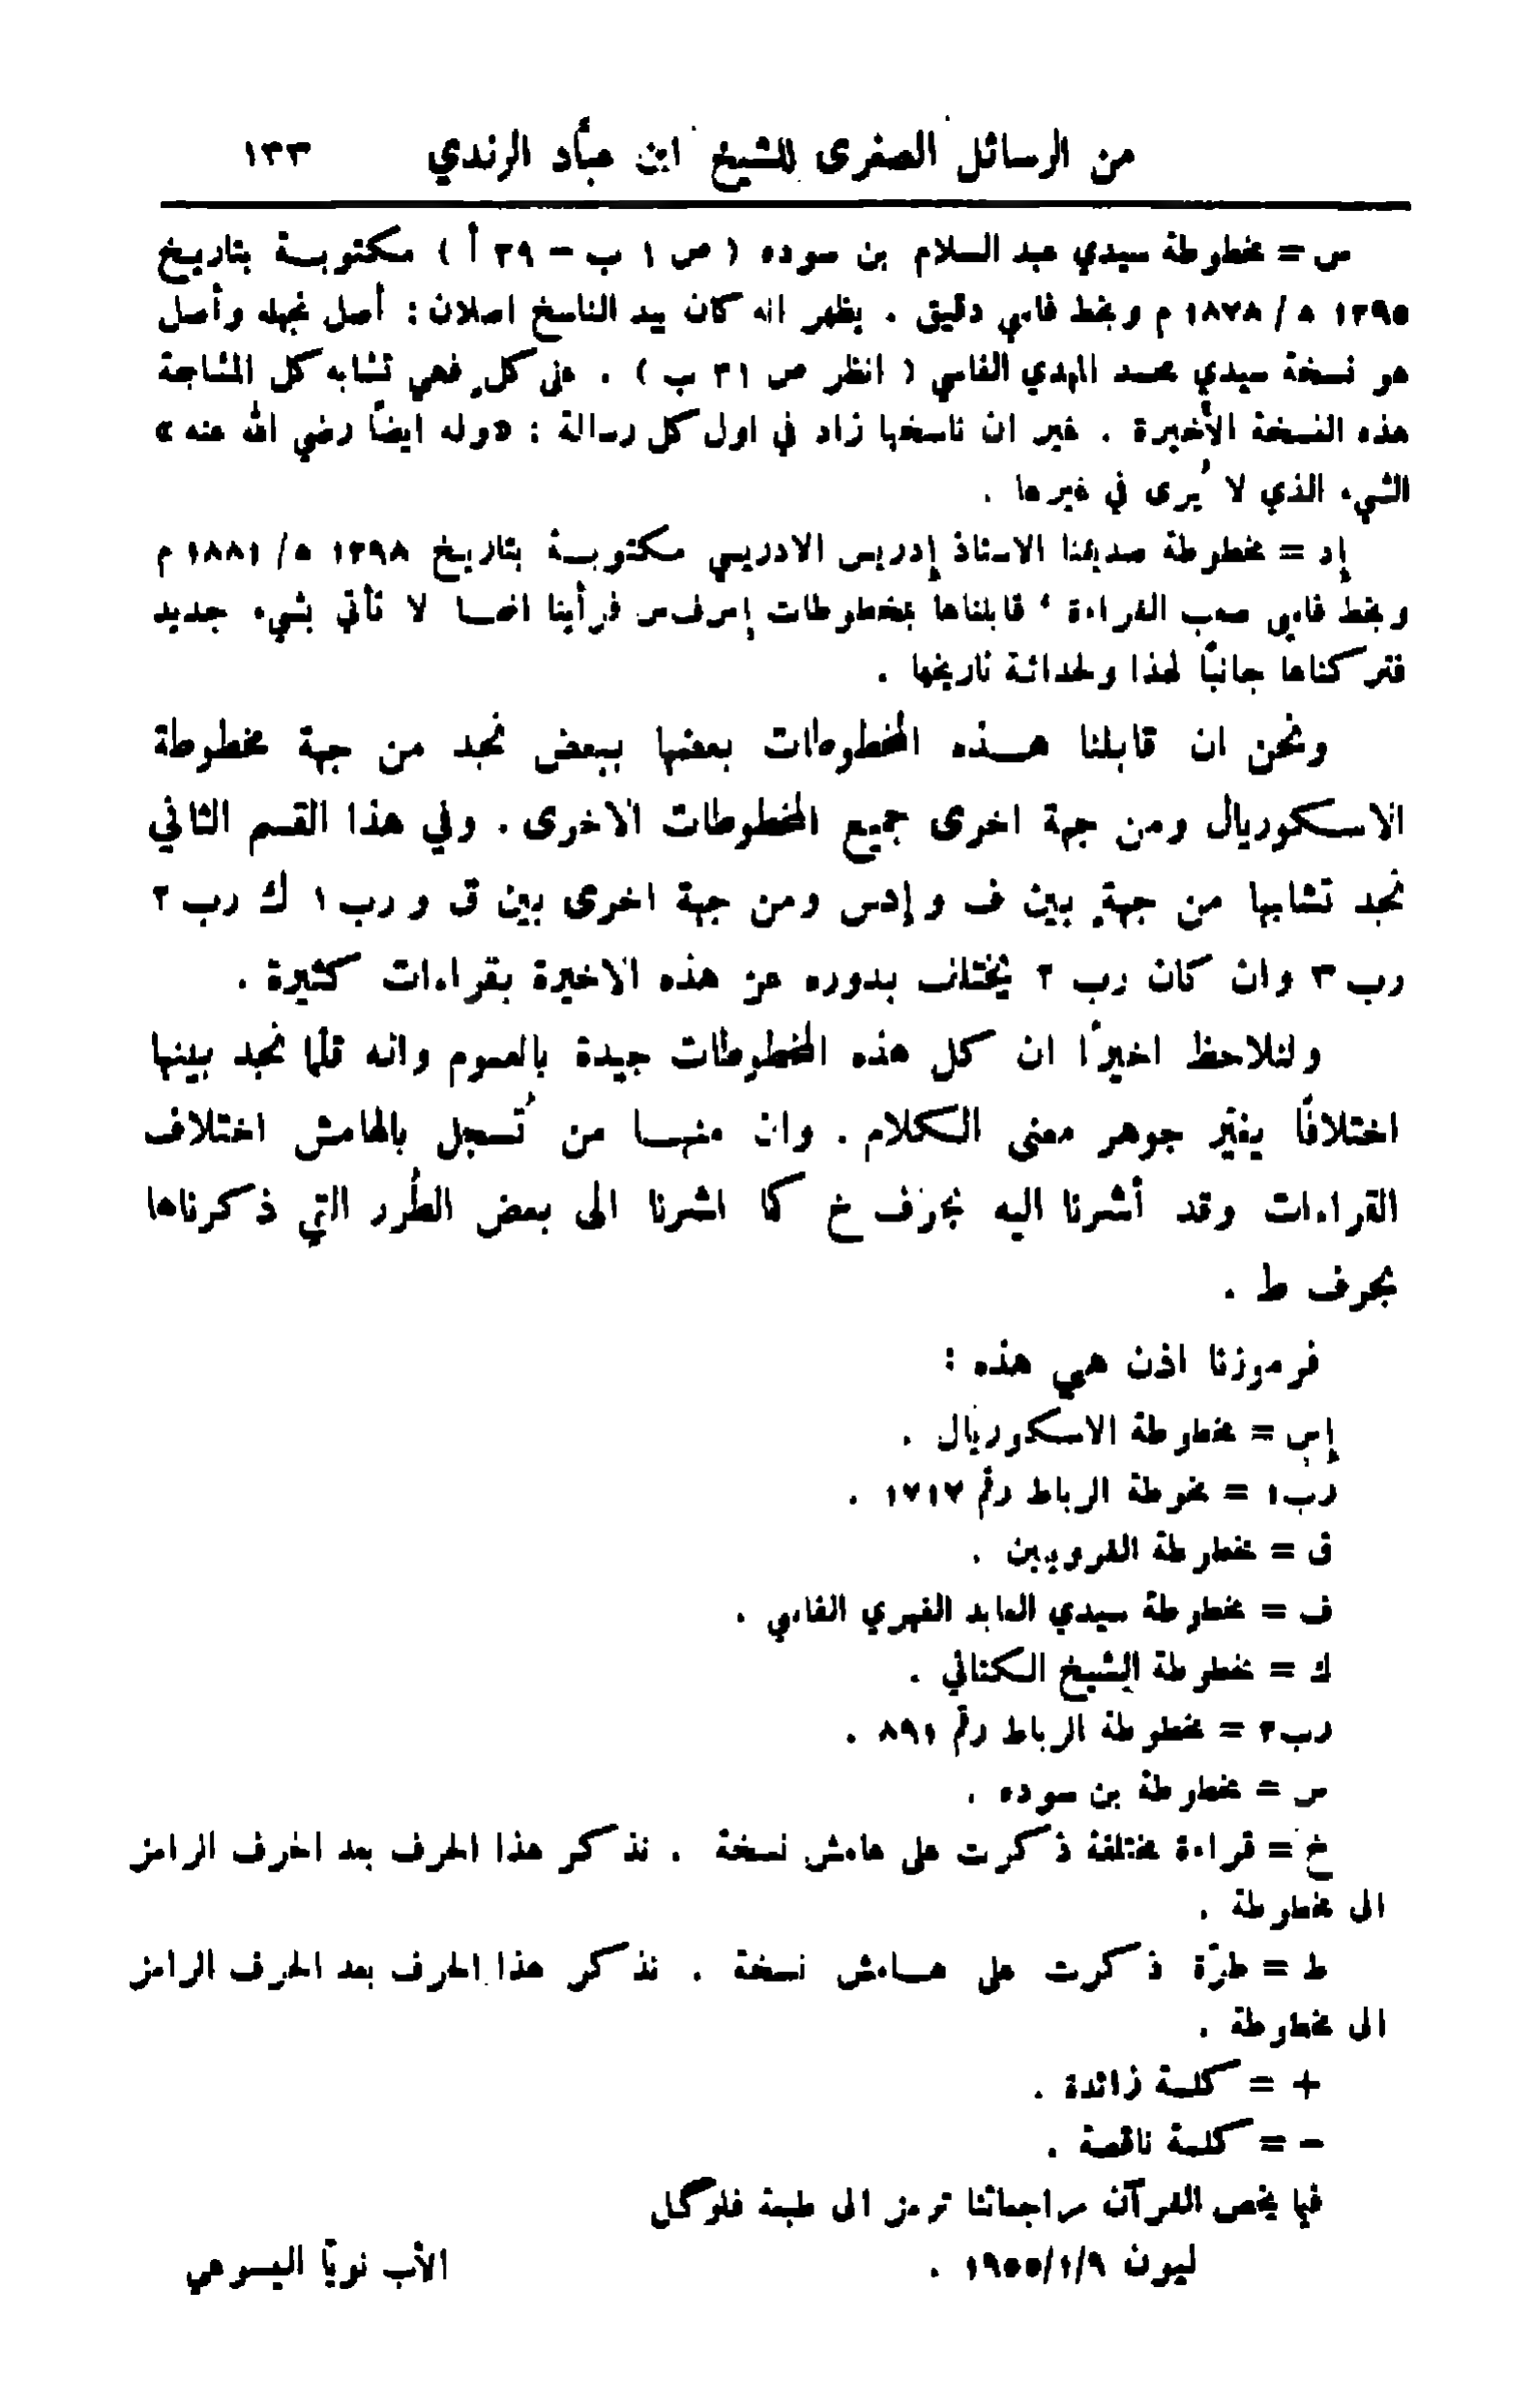 من الرسائل الصغرى للشيخ ابن عبّاد الرندي ١٣٣
س = مخطوطة سيدي عبد السلام بن سوده ( ص ١ ب – ٣٩ أ ) مكتوبـة بتاريـخ
١٢٩٥ ه / ١٨٧٨ م وبخط فاسي دقيق . يظهر انه كان بيد الناسخ اصلان : أصل نجهله وأصل
هو نسخة سيدي محمد المهدي الفاسي ( انظر ص ٣١ ب ) . على كلٍ فهي تشابه كل المشابهة
هذه النسخة الأخيرة . غير ان ناسخها زاد في اول كل رسالة : «وله ايضاً رضي الله عنه »
الشيء الذي لا يُرى في غيرها .
إد = مخطوطة صديقنا الاستاذ إدريس الادريسي مكتوبـة بتاريـخ ١٢٩٨ ه / ١٨٨١ م
وبخط فاسي صعب القراءة ، قابلناها بمخطوطات إس ف س فرأينا انهـا لا تأتي بشيء جديد
فتركناها جانبًا لهذا ولحداثة تاريخها .
ونحن ان قابلنا هـذه المخطوطات بعضها ببعض نجد من جهة مخطوطة
الاسكوريال ومن جهة اخرى جميع المخطوطات الاخرى . وفي هذا القسم الثاني
نجد تشابها من جهةٍ بين ف وإدس ومن جهة اخرى بين ق و رب ١ ك رب ٢
رب ٣ وان كان رب ٢ يختلف بدوره عن هذه الاخيرة بقراءات كثيرة .
ولنلاحظ اخيرًا ان كل هذه المخطوطات جيدة بالعموم وانه قلّما نجد بينها
اختلافًا يغيّر جوهر معنى الكلام . وان منهـا من تُسجل بالهامش اختلاف
القراءات وقد أشرنا اليه بحرف خ كما اشرنا الى بعض الطُرر التي ذكرناها
بحرف ط .
فرموزنا اذن هي هذه :
إس = مخطوطة الاسكوريال .
رب١ = مخوطة الرباط رقم ١٧١٧ .
ق = مخطوطة القرويين .
ف = مخطوطة سيدي العابد الفهري الفاسي .
ك = مخطوطة الشيخ الكتاني .
رب٢ = مخطوطة الرباط رقم ٨٩١ .
س = مخطوطة بن سوده .
خ = قراءة مختلفة ذكرت على هامش نسخة . نذكر هذا الحرف بعد الحرف الرامز
الى مخطوطة .
ط = طرّة ذكرت على هـامش نسخة . نذكر هذا الحرف بعد الحرف الرامز
الى مخطوطة .
+ = كلمة زائدة .
– = كلمة ناقصة .
فيما يخص القرآن مراجعاتنا ترمز الى طبعة فلوگل
ليون ١٩٥٥/١/٩ . الأب نويّا اليسوعي